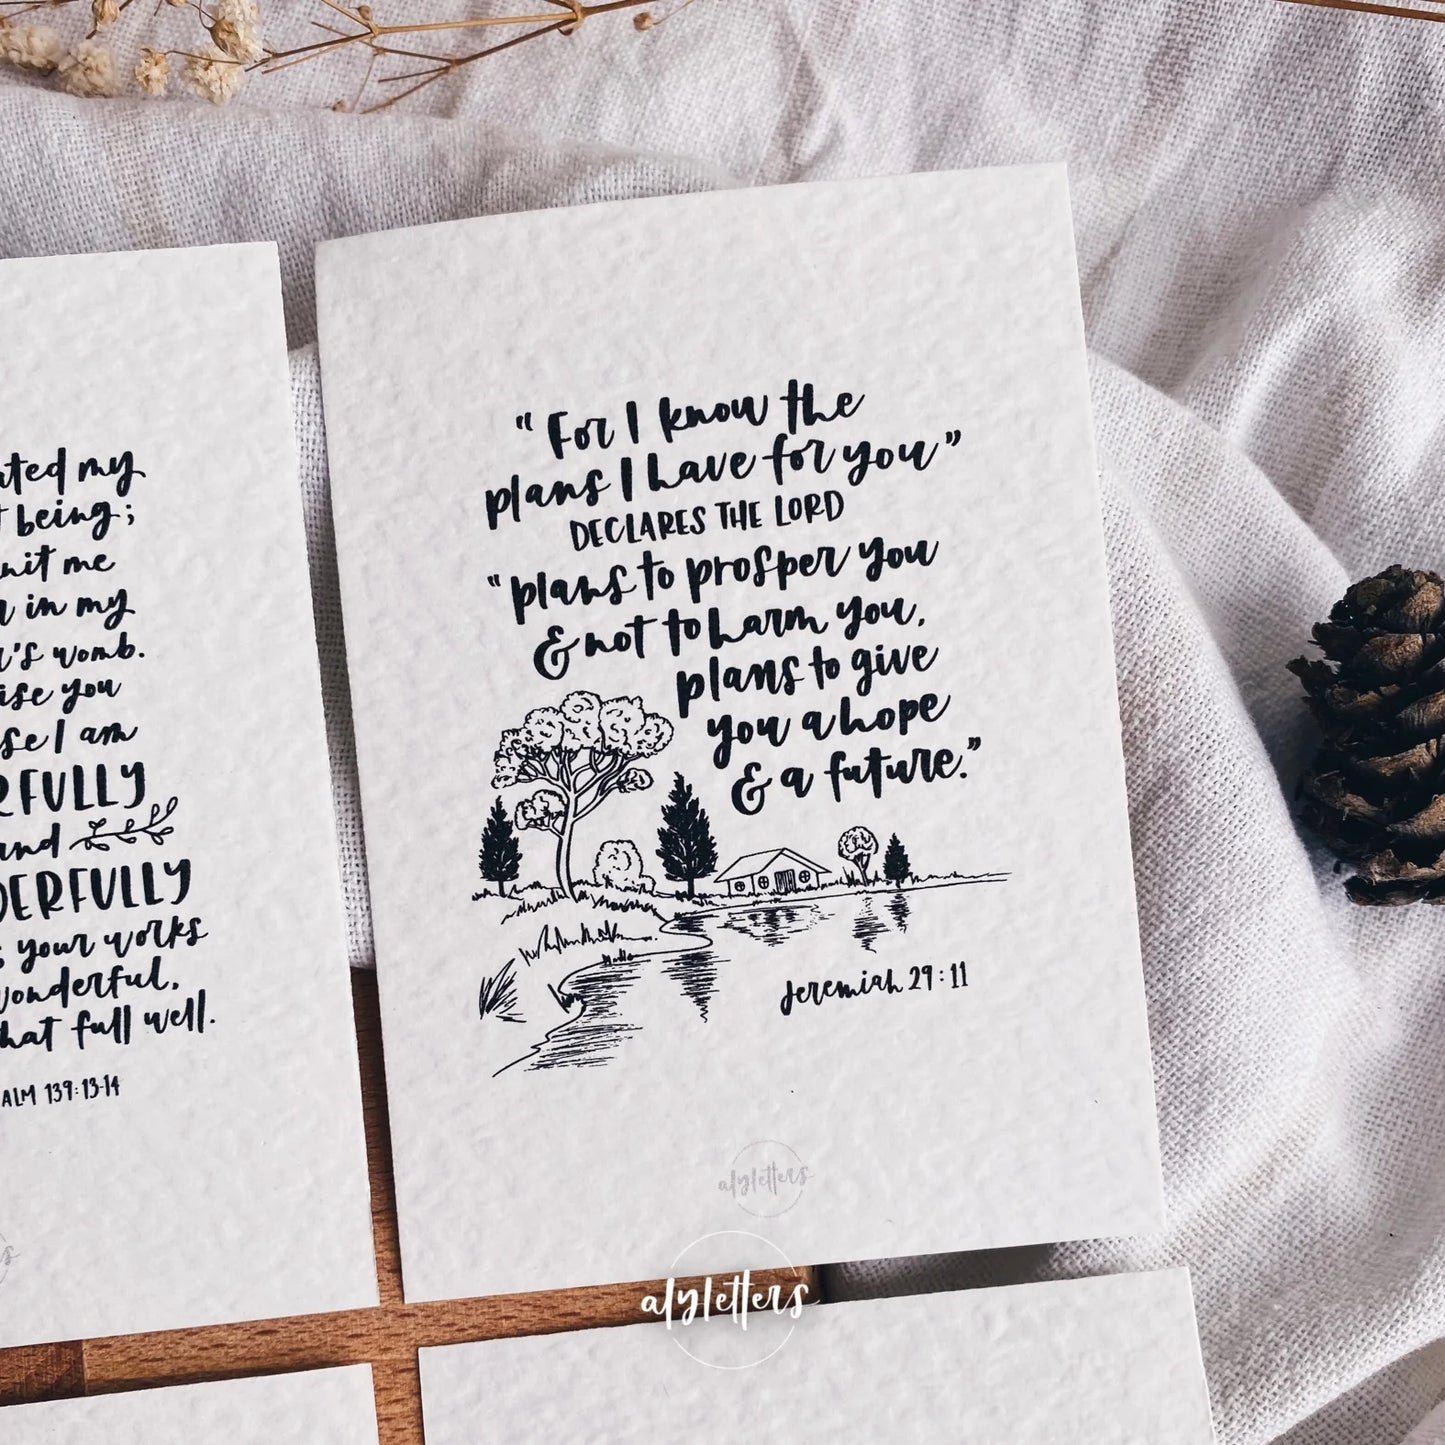 my
being;
me
in my
womb.
you
I am
and
your works
full well.
139:13-14
"For I know the
plans I have for you"
DECLARES THE LORD
"plans to prosper you
& not to harm you,
plans to give
you a hope
& a future."
Jeremiah 29:11
alyletters
alyletters